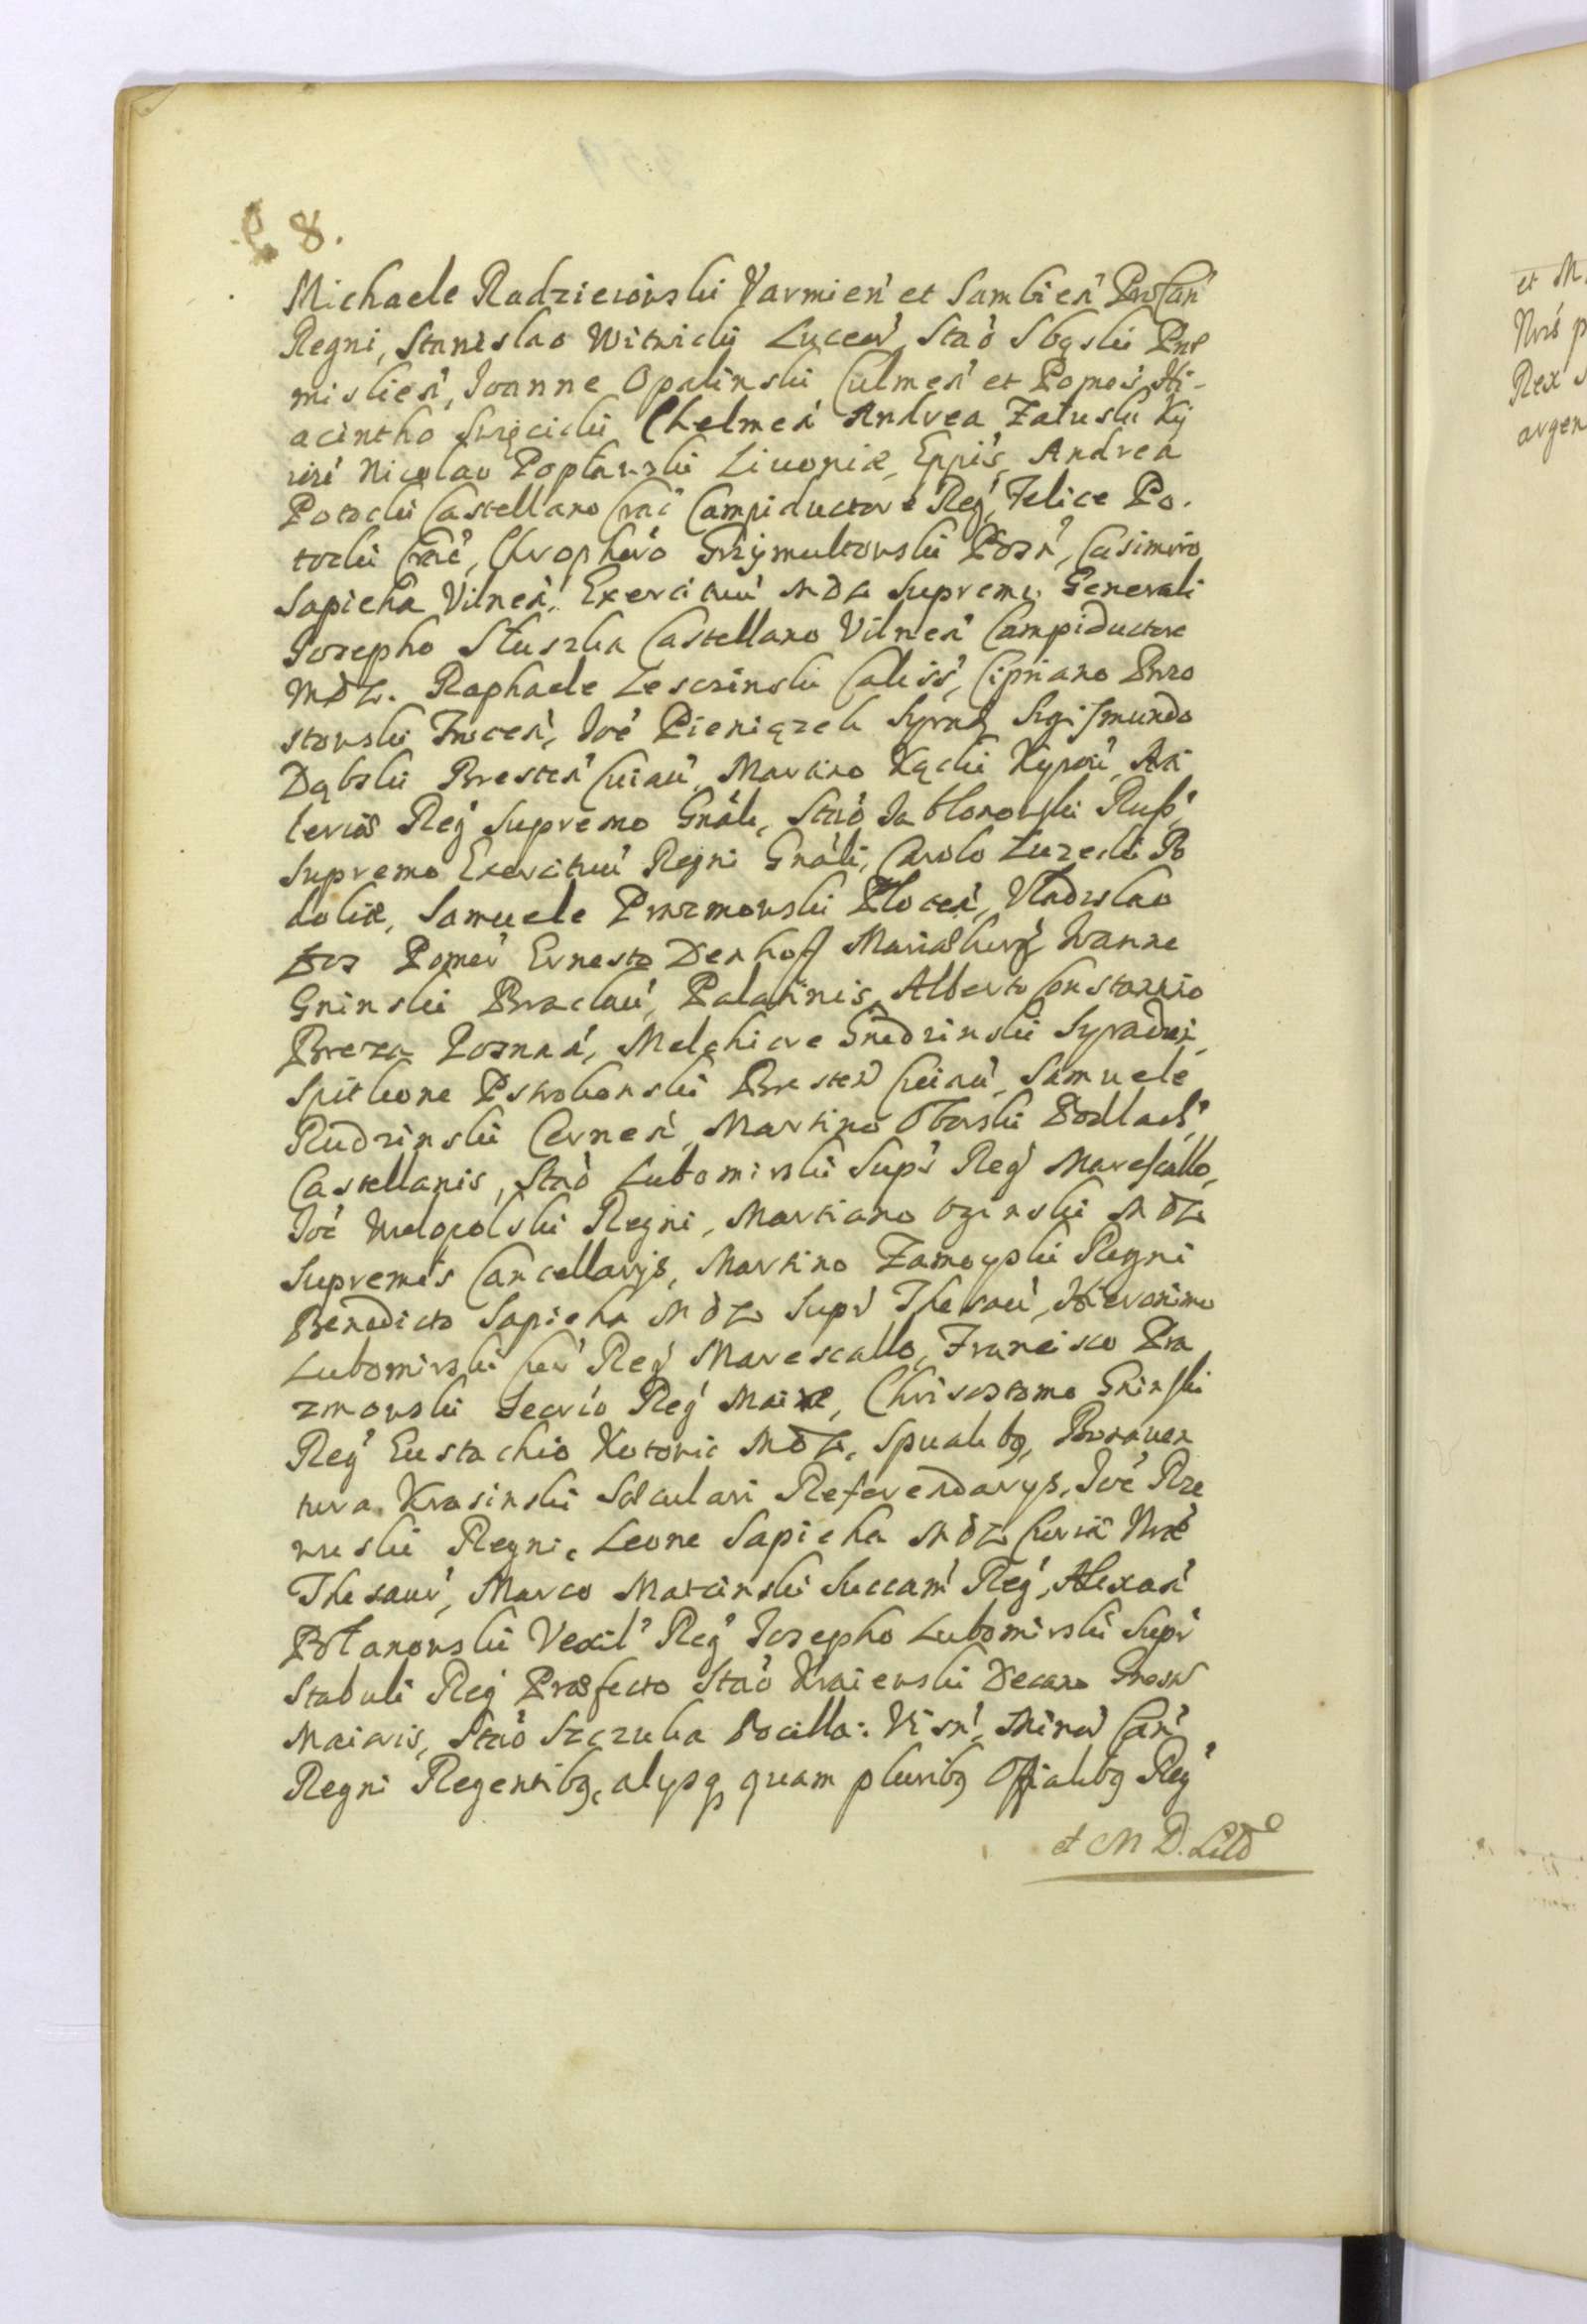 8.
Michaele Radzieiowski Varmień et Sambień Pro Cań
Regni, Stanislao Witwicki Luceor, Stao Sbąski Pre
mislień, Joanne Opalinski Culmeń et Pomes, Hi-
acintho Swięcicki Chelmeń Andrea Załuski Kij
viei Nicolao Popławski Livoniæ, Eppis, Andrea
Potocki Castellano Crac Campiductore Reg, Felice Po.
tocki Crac, Chrophoro Grzymultowski Posń, Casimiro
Sapieha Vilneń, Exercituu M D L Supremo Generali
Josepho Słuszka Castellano Vilneń Campiductore
M D L. Raphaele Lesczinski Caliss, Cipriano Brzo
stowski Troceń, Joe Pieniązek Syrad, Sigismundo
Dąbski Bresteń Cuiau, Martino Kącki Kyiou, Ar
leriæ Reg Supremo Gnali, Stao Jabłonowski Russ,
Supremo Exercituu Regni Gnali, Carolo Luzecki Po
doliæ, Samuele Prazmowski Płoceń, Vladislao
Łos Pomer Ernesto Denhoff Mariæburg Joanne
Gninski Braclau, Palatinis, Alberto Constantio
Breza Posnań, Melchiore Grudzinski Syradien,
Spitkone Pstrokonski Bresten Cuiau, Samuele
Rudzinski Cerneń, Martino Oborski Podlach,
Castellanis, Stao Lubomirski Supr Reg Marescallo,
Joe Wielopolski Regni, Martiano Oginski M D L
Supremis Cancellarijs, Martino Zamoyski Regni
Benedicto Sapieha M D L Supr Thesau, Hieronimo
Lubomirski Cur Reg Marescallo, Francisco Pra
zmowski Secrio Reg Maire, Chrisostomo Gninski
Reg Eustachio Kotowic M D L, Spualibg, Bonaven
tura Krasinski Sæculari Referendarys, Joe Prze
Regni, Leone Sapieha M D L Curiæ Nræ
Thesaur, Marco Matcinski Succam Reg, Alexań
Potanowski Vexil Reg Josepho Lubomirski Supr
Stabuli Reg Præfecto Stao Kraiewski Decano Gnesn
Maioris, Stao Szczuka Pocilla: Visń, Minor Can
Regni Regentibg, alysq quam pluribg Offialibg Reg
et M D. Litd
et M.
Nris p
Rex
argen